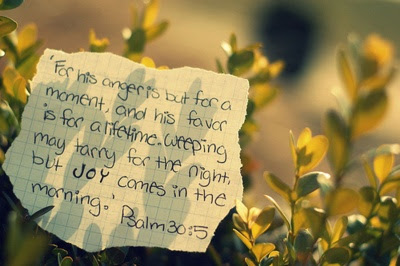 'For his anger is but for a
moment, and his favor
is for a lifetime. Weeping
may tarry for the night,
but JOY comes in the
morning.' Psalm 30:5